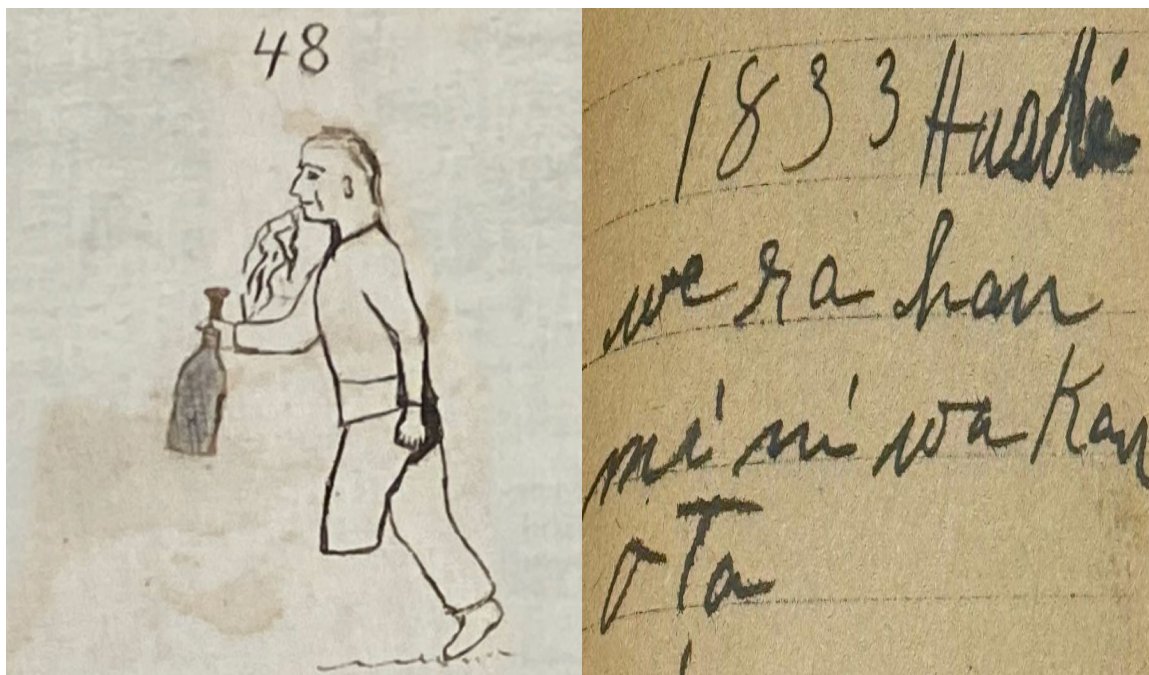 48
1833 Husdli
we ra han
mi ni wa Kan
o Ta